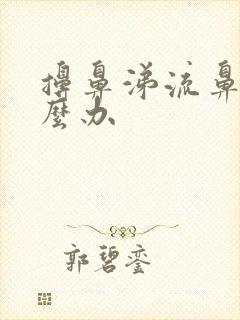 擤鼻涕流鼻
麼办
郭碧銮